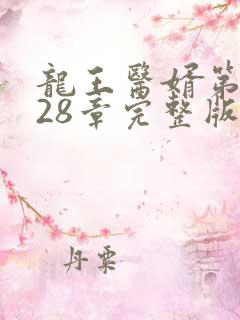 龍王醫婿第
28章完整版
丹粟